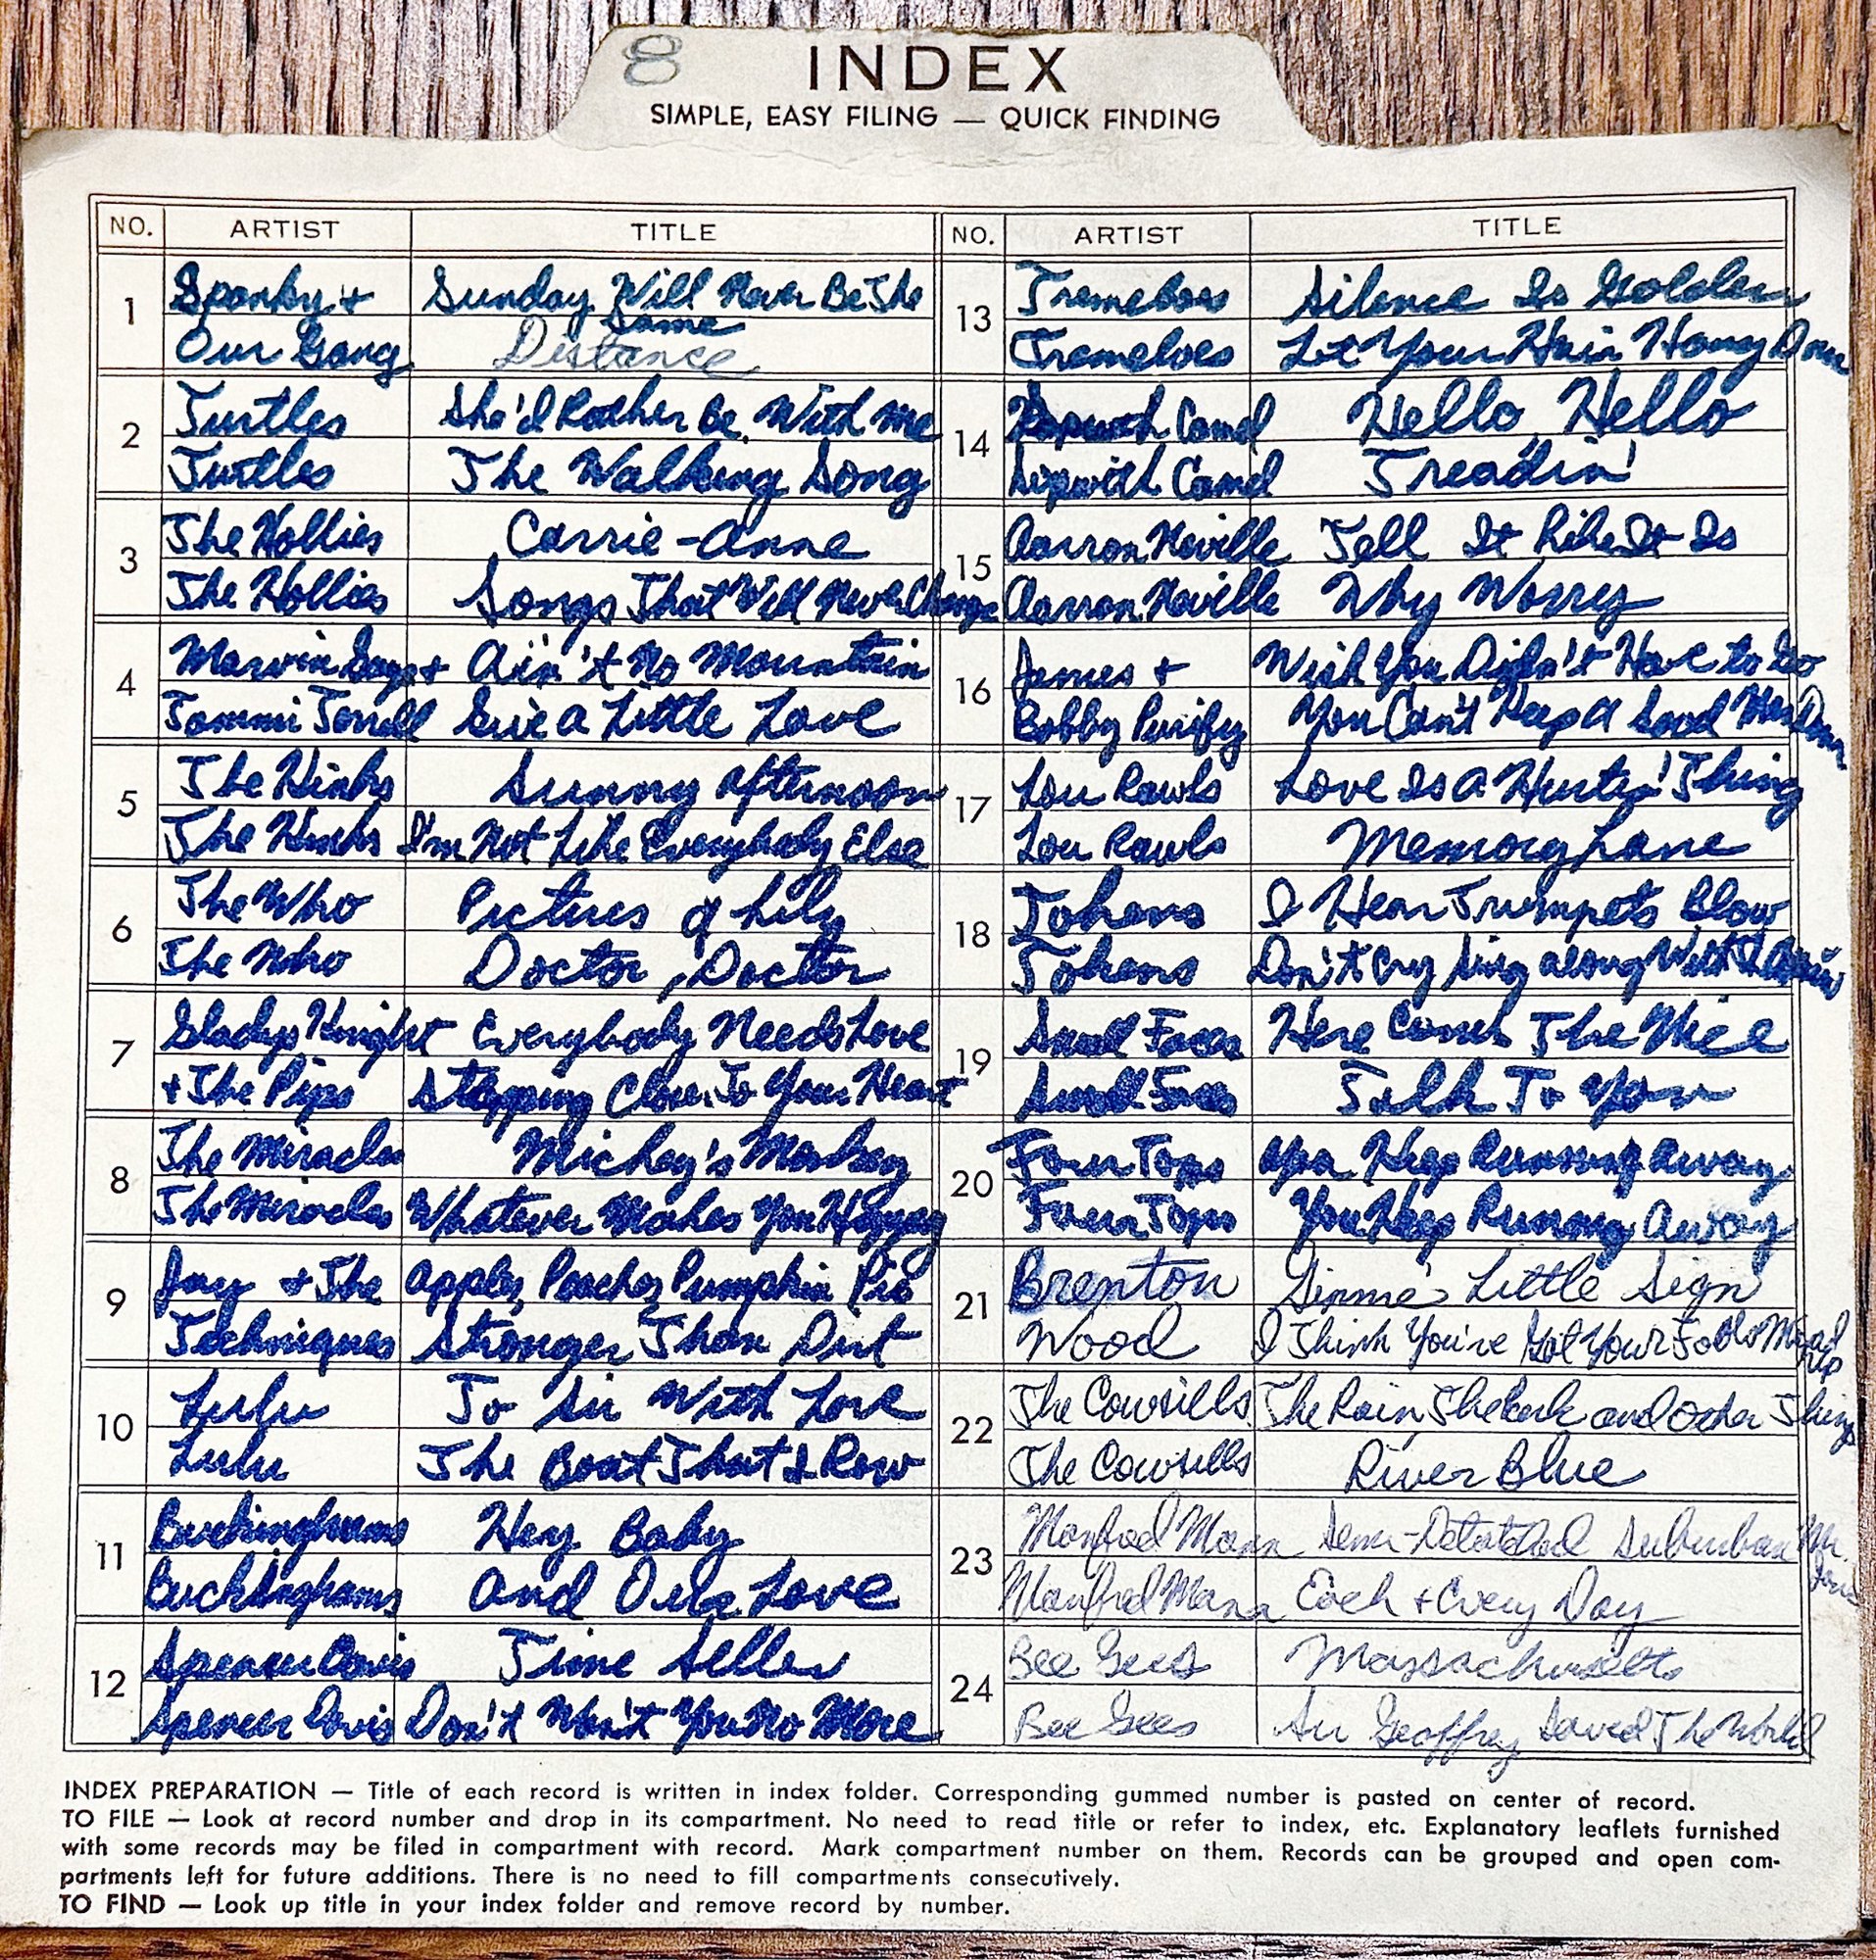 8
INDEX
SIMPLE, EASY FILING — QUICK FINDING
NO. ARTIST TITLE
1 Spanky + Sunday Will Never Be The Same
Our Gang Distance
2 Turtles She'd Rather Be With Me
Turtles The Walking Song
3 The Hollies Carrie-Anne
The Hollies Songs That Will Never Change
4 Marvin Gaye + Ain't No Mountain
Tammi Terrell Give a Little Love
5 The Kinks Sunny Afternoon
The Kinks I'm Not Like Everybody Else
6 The Who Pictures of Lily
The Who Doctor, Doctor
7 Gladys Knight Everybody Needs Love
+ The Pips Stepping Closer To Your Heart
8 The Miracles Mickey's Monkey
The Miracles Whatever Makes You Happy
9 Jay + The Apples, Peaches, Pumpkin Pie
Techniques Stronger Than Dirt
10 Lulu To Sir With Love
Lulu The Boat That I Row
11 Buckinghams Hey Baby
Buckinghams And Our Love
12 Spencer Davis Time Seller
Spencer Davis Don't Want You No More
NO. ARTIST TITLE
13 Tremeloes Silence Is Golden
Tremeloes Let Your Hair Hang Down
14 Sopwith Camel Hello, Hello
Sopwith Camel Treadin'
15 Aarron Neville Tell It Like It Is
Aarron Neville Why Worry
16 James + Wish You Didn't Have to Go
Bobby Purify You Can't Keep A Good Man Down
17 Lou Rawls Love Is A Hurtin' Thing
Lou Rawls Memory Lane
18 Tokens I Hear Trumpets Blow
Tokens Don't Cry Sing Along With The Music
19 Small Faces Here Comes The Nice
Small Faces Talk To You
20 Four Tops You Keep Running Away
Four Tops You Keep Running Away
21 Brenton Gimme Little Sign
Wood I Think You've Got Your Fools Mixed Up
22 The Cowsills The Rain The Park and Other Things
The Cowsills River Blue
23 Manfred Mann Semi-Detatched Suburban Mr. Jones
Manfred Mann Each + Every Day
24 Bee Gees Massachusetts
Bee Gees Sir Geoffrey Saved The World
INDEX PREPARATION — Title of each record is written in index folder. Corresponding gummed number is pasted on center of record.
TO FILE — Look at record number and drop in its compartment. No need to read title or refer to index, etc. Explanatory leaflets furnished
with some records may be filed in compartment with record. Mark compartment number on them. Records can be grouped and open com-
partments left for future additions. There is no need to fill compartments consecutively.
TO FIND — Look up title in your index folder and remove record by number.